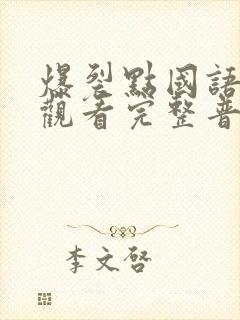 爆裂點國語
觀看完整普
李文啓